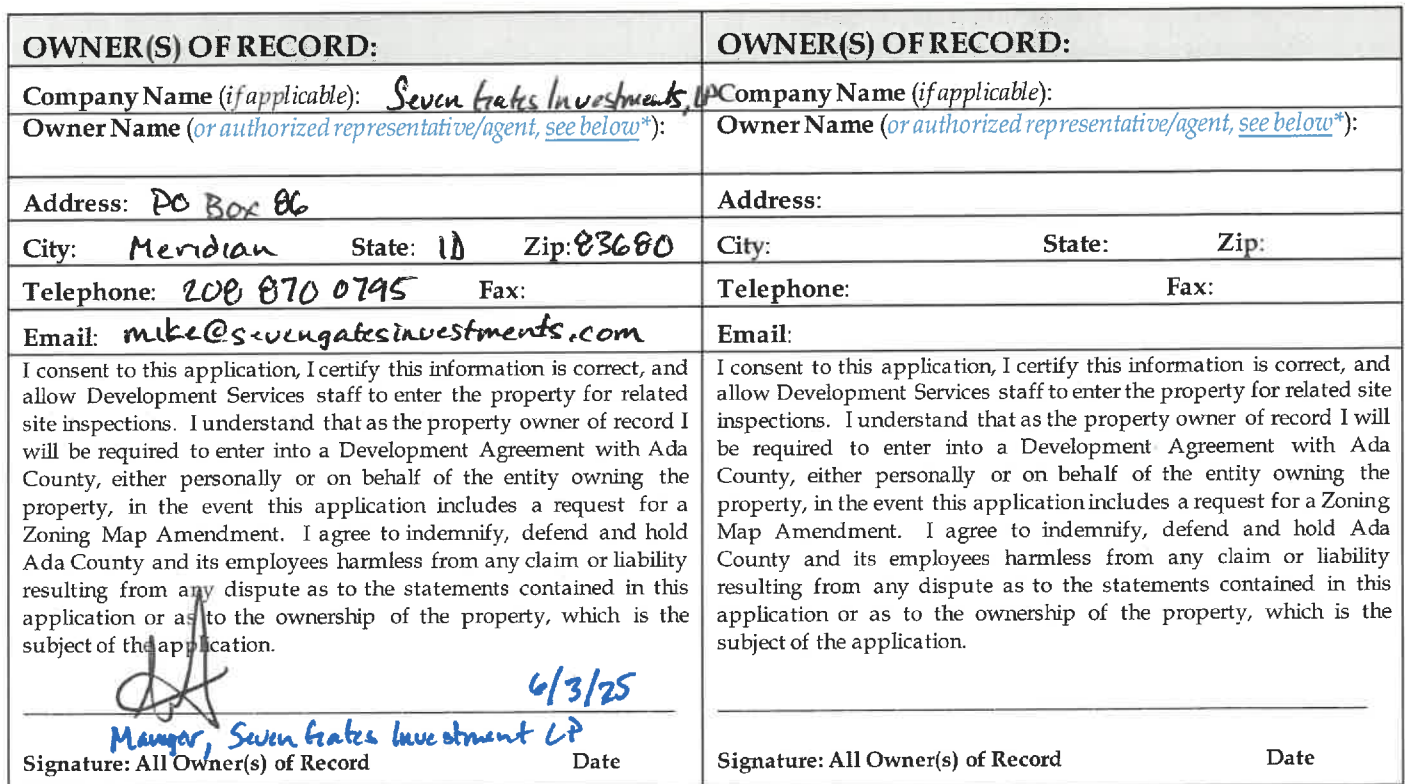 OWNER(S) OF RECORD:
Company Name (if applicable): Seven Gates Investments, LP
Owner Name (or authorized representative/agent, see below*):
Address: PO Box 86
City: Meridian State: ID Zip: 83680
Telephone: 208 870 0795 Fax:
Email: mike@sevengatesinvestments.com
I consent to this application, I certify this information is correct, and
allow Development Services staff to enter the property for related
site inspections. I understand that as the property owner of record I
will be required to enter into a Development Agreement with Ada
County, either personally or on behalf of the entity owning the
property, in the event this application includes a request for a
Zoning Map Amendment. I agree to indemnify, defend and hold
Ada County and its employees harmless from any claim or liability
resulting from any dispute as to the statements contained in this
application or as to the ownership of the property, which is the
subject of the application.
6/3/25
Manger, Seven Gates Investment LP
Signature: All Owner(s) of Record Date
OWNER(S) OF RECORD:
Company Name (if applicable):
Owner Name (or authorized representative/agent, see below*):
Address:
City: State: Zip:
Telephone: Fax:
Email:
I consent to this application, I certify this information is correct, and
allow Development Services staff to enter the property for related site
inspections. I understand that as the property owner of record I will
be required to enter into a Development Agreement with Ada
County, either personally or on behalf of the entity owning the
property, in the event this application includes a request for a Zoning
Map Amendment. I agree to indemnify, defend and hold Ada
County and its employees harmless from any claim or liability
resulting from any dispute as to the statements contained in this
application or as to the ownership of the property, which is the
subject of the application.
Signature: All Owner(s) of Record Date